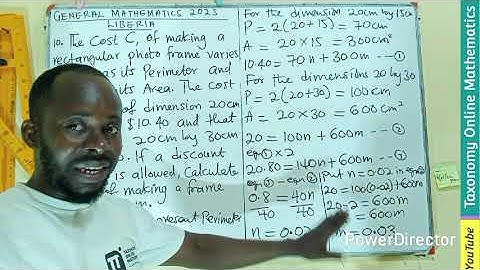 GENERAL MATHEMATICS 2023
LIBERIA
10. The Cost C, of making a
rectangular photo frame varies
as its Perimeter and
its Area. The Cost
of dimension 20cm
$10.40 and that
20cm by 30cm
. If a discount
is allowed, Calculate
of making a frame
Perimeter
For the dimension 20cm by 15cm
P = 2(20+15) = 70cm
A = 20×15 = 300cm²
10.40 = 70n + 300m --- ①
For the dimensions 20 by 30
P = 2(20+30) = 100cm
A = 20×30 = 600cm²
20 = 100n + 600m --- ②
eq ① × 2
20.80 = 140n + 600m -- ③
eq ③ - eq ②
0.8 = 40n
40 40
n = 0.02
Put n = 0.02 in eq ②
20 = 100(0.02) + 600m
20-2 = 600m
= 600m
m = 0.03
PowerDirector
Taxonomy Online Mathematics
YouTube